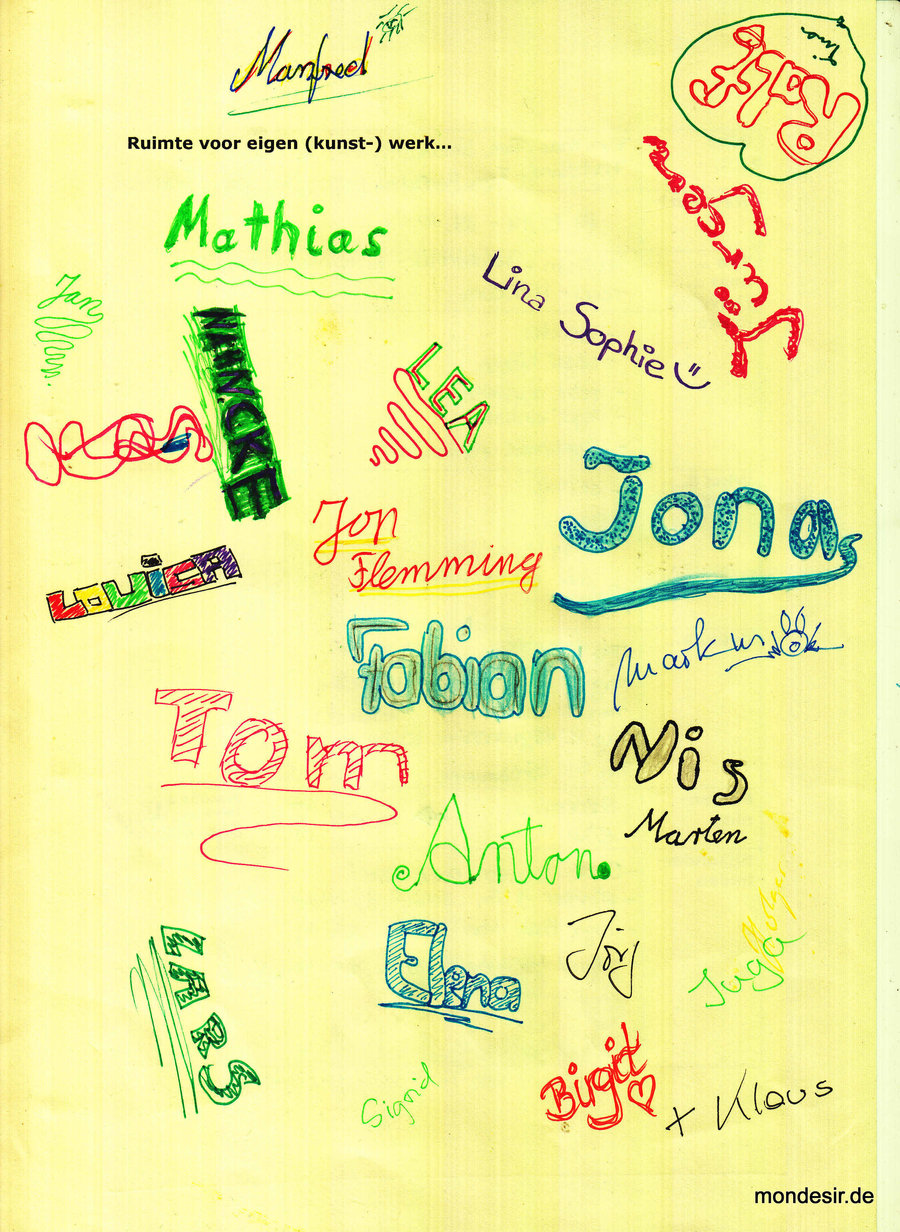 Manfred
Tina
Ralf
Ruimte voor eigen (kunst-) werk...
Mathias
Lina Sophie
Jan
NANNCKE
LEA
Jona
Jon
Flemming
LOUiCA
Fabian
Markus
Tom
Nis
Marten
Anton
Holger
LARS
Elena
Jörg
Inga
Sigrid
Birgit
+ Klaus
mondesir.de